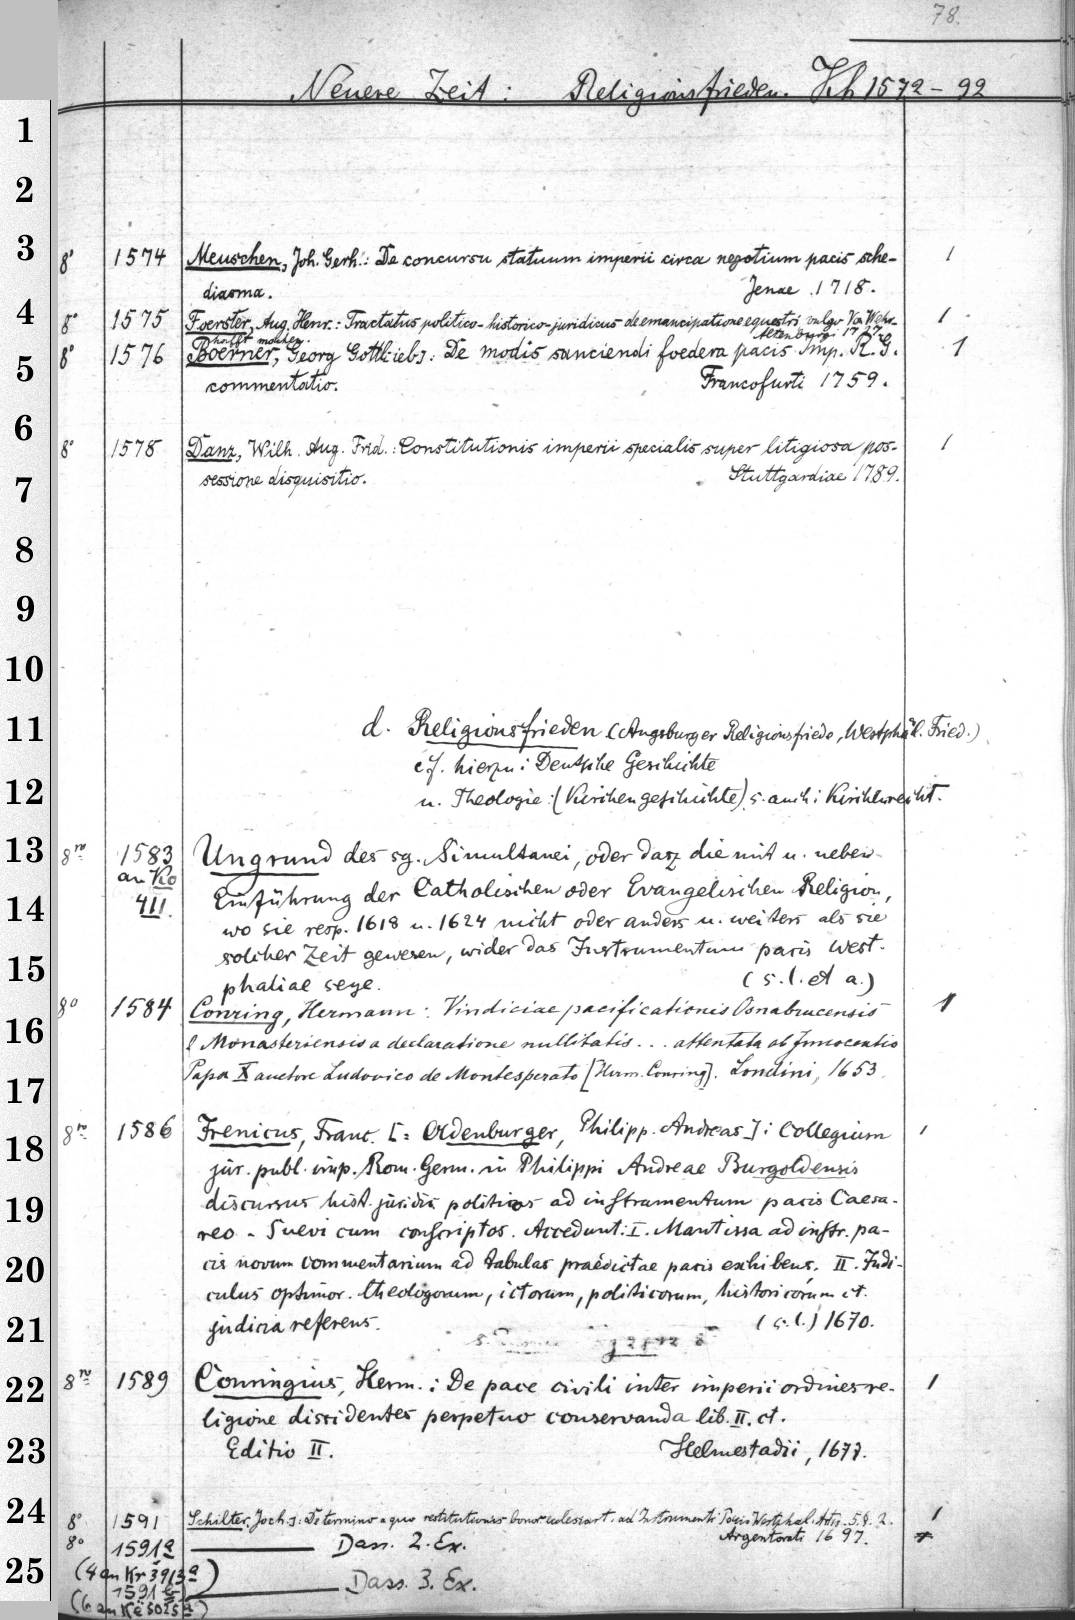 78.
Neuere Zeit: Religionsfrieden. Kh 1572-92
1
2
3
8° 1574 Meuschen, Joh. Gerh.: De concursu statuum imperii circa negotium pacis sche-
diasma. Jenae 1718.
4
8° 1575 Foerster, Aug. Henr.: Tractatus politico-historico-juridicus de emancipatione equestri, vulgo Von Wehr-
hafft machen. Altenburg 1727.
5
8° 1576 Boerner, Georg Gottlieb: De modis sanciendi foedera pacis Imp. R. G. 1
commentatio. Francofurti 1759.
6
8° 1578 Danz, Wilh. Aug. Frid.: Constitutionis imperii specialis super litigiosa pos- 1
7
sessione disquisitio. Stuttgardiae 1789.
8
9
10
11
d. Religionsfrieden (Augsburger Religionsfriede, Westphäl. Fried.)
cf. hierzu: Deutsche Geschichte
12
u. Theologie: (Kirchengeschichte) s. auch: Kirchenrecht.
13
8ro 1583 Ungrund des sg. Simultanei, oder dasz die mit u. neben
an Ko
Einführung der Catholischen oder Evangelischen Religion,
14
4III.
wo sie resp. 1618 u. 1624 nicht oder anders u. weiters als sie
solcher Zeit gewesen, wider das Instrumentum pacis West-
15
phaliae seye. (s. l. et a.)
8° 1584 Conring, Hermann: Vindiciae pacificationis Osnabrucensis 1
16
& Monasteriensis a declaratione nullitatis ... attentata ab Innocentio
17
Papa X auctore Ludovico de Montesperato [Herm. Conring]. Londini, 1653.
8ro 1586 Irenicus, Franc. [= Oldenburger, Philipp. Andreas]: Collegium 1
18
jur. publ. imp. Rom. Germ. in Philippi Andreae Burgoldensis
19
discursus hist. juridic. politicos ad instrumentum pacis Caesa-
reo-Suevicum conscriptos. Accedunt: I. Mantissa ad instr. pa-
20
cis novum commentarium ad tabulas praedictae pacis exhibens. II. Indi-
culus optimor. theologorum, ictorum, politicorum, historicorum et.
21
judicia referens. (s. l.) 1670.
22
8ro 1589 Conringius, Herm.: De pace civili inter imperii ordines re- 1
ligione dissidentes perpetuo conservanda lib. II. ct.
23
Editio II. Helmestadii, 1677.
24
8° 1591 Schilter, Joh.: De termino a quo restitutionis bonor. ecclesiast. ad Instrumenti Pacis Westphal. Art. 5. §. 2. 1
Argentorati 1697.
8° 1591a Dass. 2. Ex.
25
(4 an Kr 3913a)
1591b Dass. 3. Ex.
(6 an Ke 5025a)